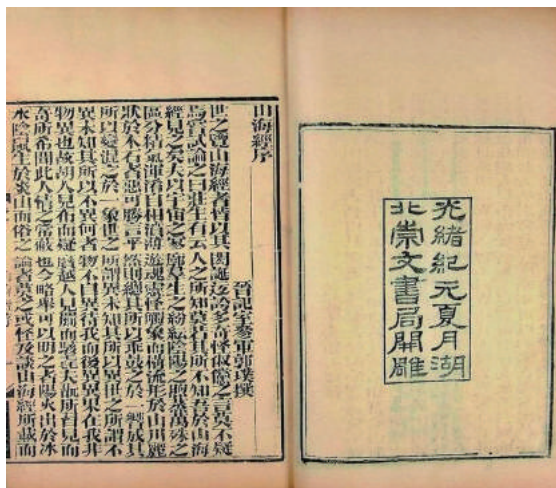 光緒紀元夏月湖
北崇文書局開雕
山海經序
晉記室參軍郭璞撰
世之覽山海經者皆以其閎誕迂誇多奇怪俶儻之言莫不疑
焉嘗試論之曰莊生有云人之所知莫若其所不知吾於山海
經見之矣夫以宇宙之寥廓羣生之紛紜陰陽之煦蒸萬殊之
區分精氣渾淆自相濆薄遊魂靈怪觸象而構流形於山川麗
狀於木石者惡可勝言乎然則總其所以乖鼓之於一響成其
所以變混之於一象世之所謂異未知其所以異世之所謂不
異未知其所以不異何者物不自異待我而後異異果在我非
物異也故胡人見布而疑黂越人見罽而駭毳夫翫所習見而
奇所希聞此人情之常蔽也今略舉可以明之者陽火出於冰
水陰鼠生於炎山而俗之論者莫之或怪及談山海經所載而